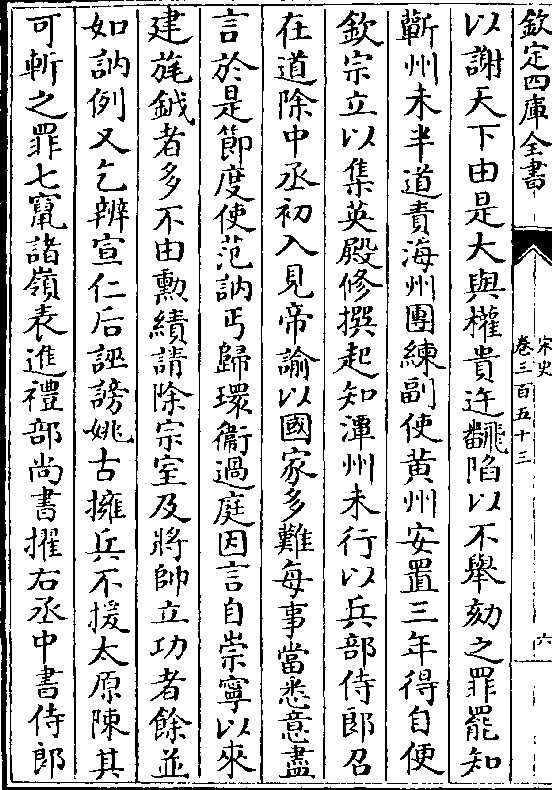 欽定四庫全書
宋史
卷三百五十三
六
以謝天下由是大與權貴迕翻陷以不舉劾之罪罷知
蘄州未半道責海州團練副使黄州安置三年得自便
欽宗立以集英殿修撰起知潭州未行以兵部侍郎召
在道除中丞初入見帝諭以國家多難每事當悉意盡
言於是節度使范訥丐歸環衞過庭因言自崇寧以來
建旄鉞者多不由勲績請除宗室及將帥立功者餘並
如訥例又乞辨宣仁后誣謗姚古擁兵不援太原陳其
可斬之罪七竄諸嶺表進禮部尚書擢右丞中書侍郎